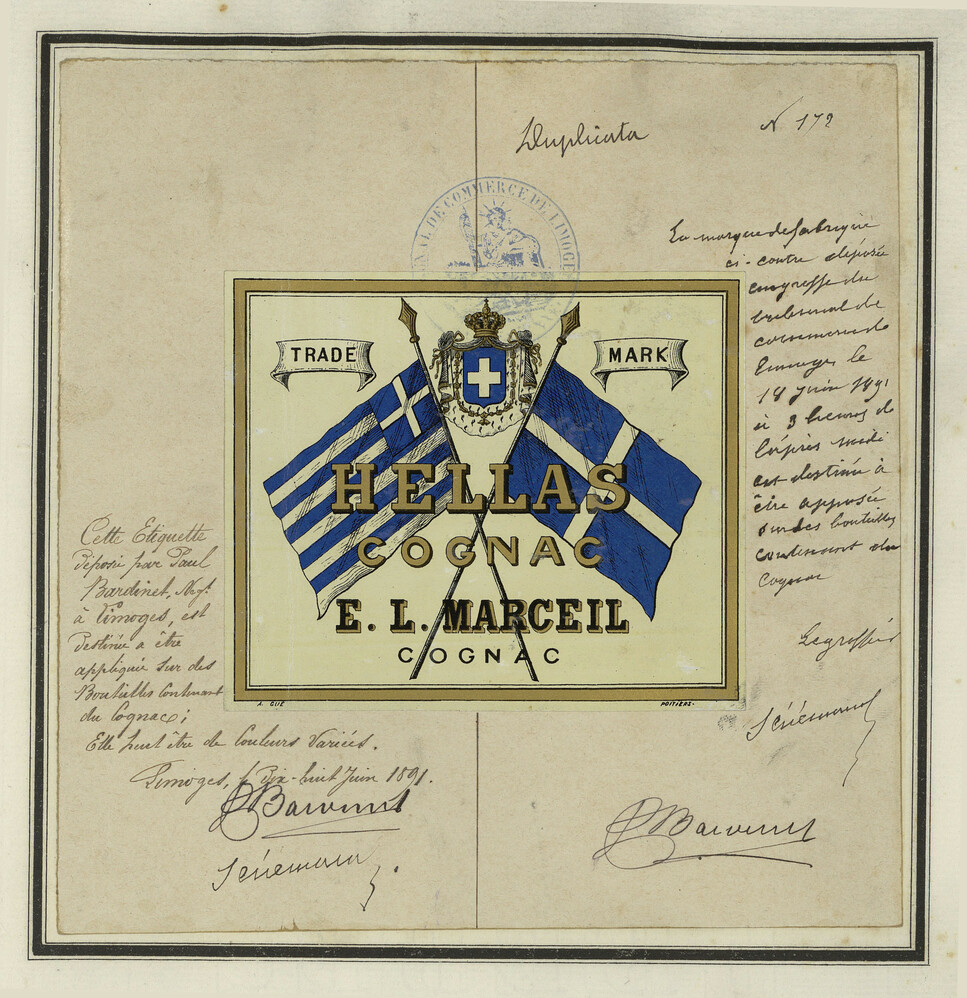 Duplicata
N 172
TRIBUNAL DE COMMERCE DE LIMOGES
La marque de fabrique
ci-contre déposée
au greffe du
tribunal de
commerce de
Limoges le
18 Juin 1891
à 3 heures de
l'après midi
est destinée à
être apposée
sur des bouteilles
contenant du
Cognac
Le greffier
TRADE
MARK
HELLAS
COGNAC
E. L. MARCEIL
COGNAC
POITIERS.
Cette Etiquette
Déposée par Paul
Bardinet, Negt
à Limoges, est
Destinée a être
appliquée sur des
Bouteilles Contenant
du Cognac;
Elle peut être de Couleurs Variées.
Limoges, le Dix-huit Juin 1891.
P Bardinet
P Bardinet